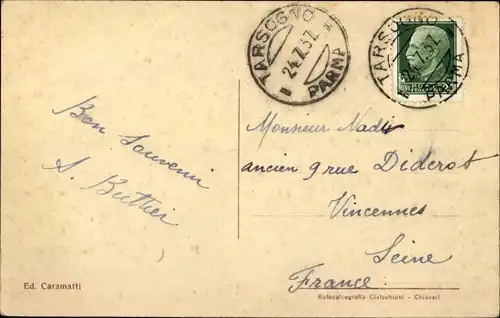 TARSOGNO
24.7.37
PARMA
TARSOGNO
24.7.37
PARMA
Bon Souvenir
A. Buthier
Monsieur Nadi
ancien 9 rue Diderot
Vincennes
Seine
France
Ed. Caramatti
Rotocalcografia Civicchioni - Chiavari